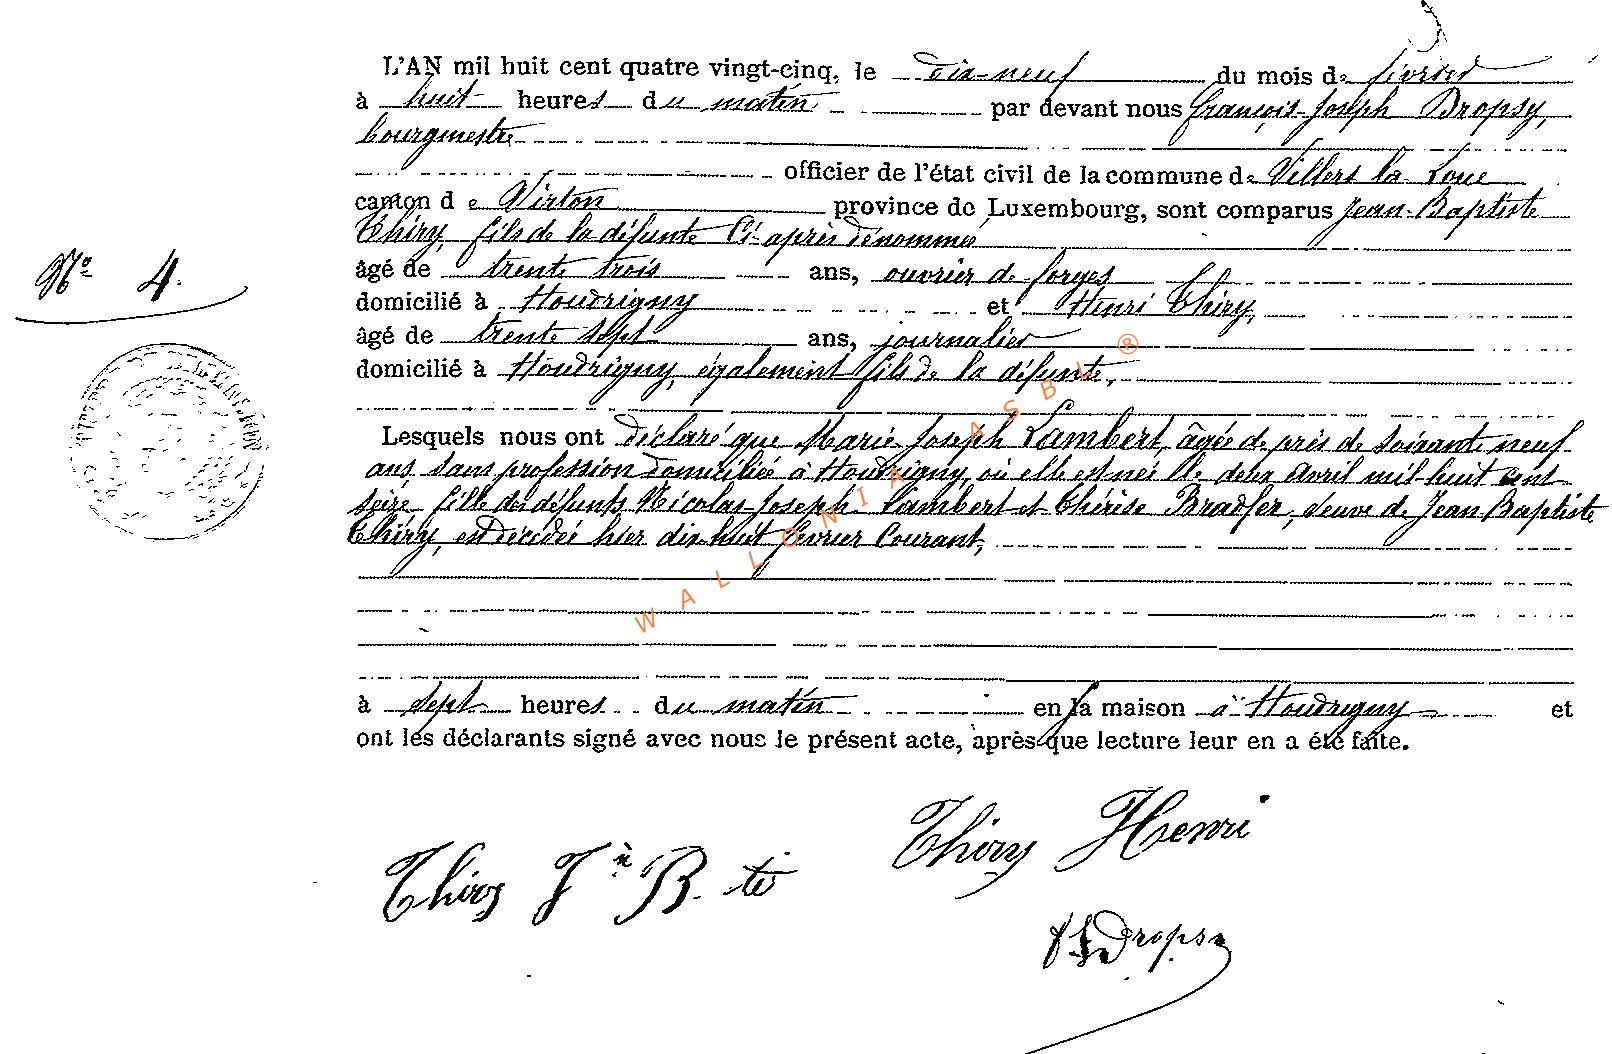 L'AN mil huit cent quatre vingt-cinq, le dix-neuf du mois de février
à huit heures du matin par devant nous François-Joseph Dropsy,
bourgmestre
officier de l'état civil de la commune de Villers la Loue
canton de Virton province de Luxembourg, sont comparus Jean-Baptiste
Thiry, fils de la défunte Ci-après dénommée
âgé de trente trois ans, ouvrier de forges
domicilié à Houdrigny et Henri Thiry,
N° 4.
âgé de trente sept ans, journalier
domicilié à Houdrigny, également fils de la défunte,
Lesquels nous ont déclaré que Marie Joseph Lambert, âgée de près de soixante neuf
ans, sans profession domiciliée à Houdrigny, où elle est née le deux avril mil huit cent
seize fille des défunts Nicolas-Joseph Lambert et Thérèse Bradfer, veuve de Jean Baptiste
Thiry, est décédée hier dix-huit février Courant,
WALLONIA ASBL ®
à sept heures du matin en sa maison à Houdrigny et
ont les déclarants signé avec nous le présent acte, après que lecture leur en a été faite.
Thiry Henri
Thiry Jn B. te
FJDropsy